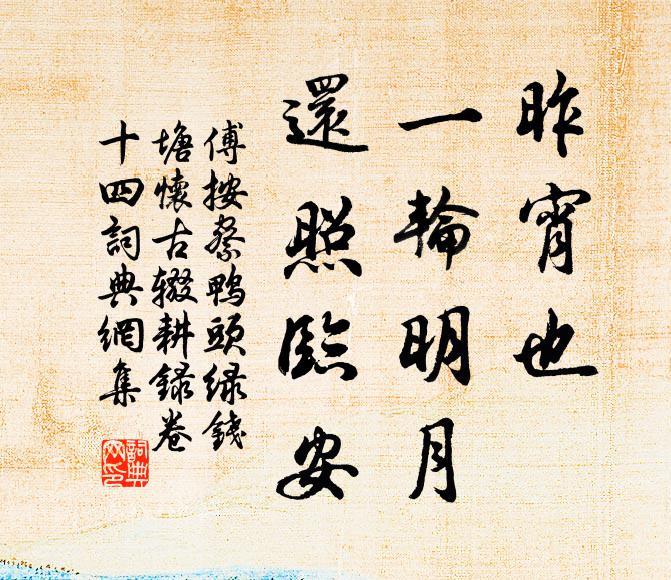 昨宵也
一輪明月
還照臨安
傅按察鴨頭綠錢
塘懷古辍耕録卷
十四詞典網集
詞典
网印